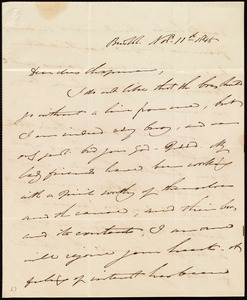 Nov. 11th, 184
My dear Mrs Chapman,
I do not like that the box should
go without a line from me, but
I am indeed very busy, and can
only just bid you God-Speed. My
lady friends have been working
with a spirit worthy of themselves
and the cause, and their box,
and its contents, I am sure
will rejoice your heart. My
feeling of interest has been